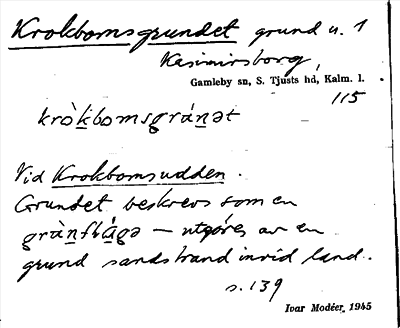 Krokbomsgrundet grund u. 1
Kasimirsborg,
Gamleby sn, S. Tjusts hd, Kalm. l.
115
kròḵbomsgráṉət
Vid Krokbomsudden.
Grundet beskrevs som en
gràṉflá̱gə — utgöres av en
grund sandstrand invid land.
s. 139
Ivar Modéer, 1945